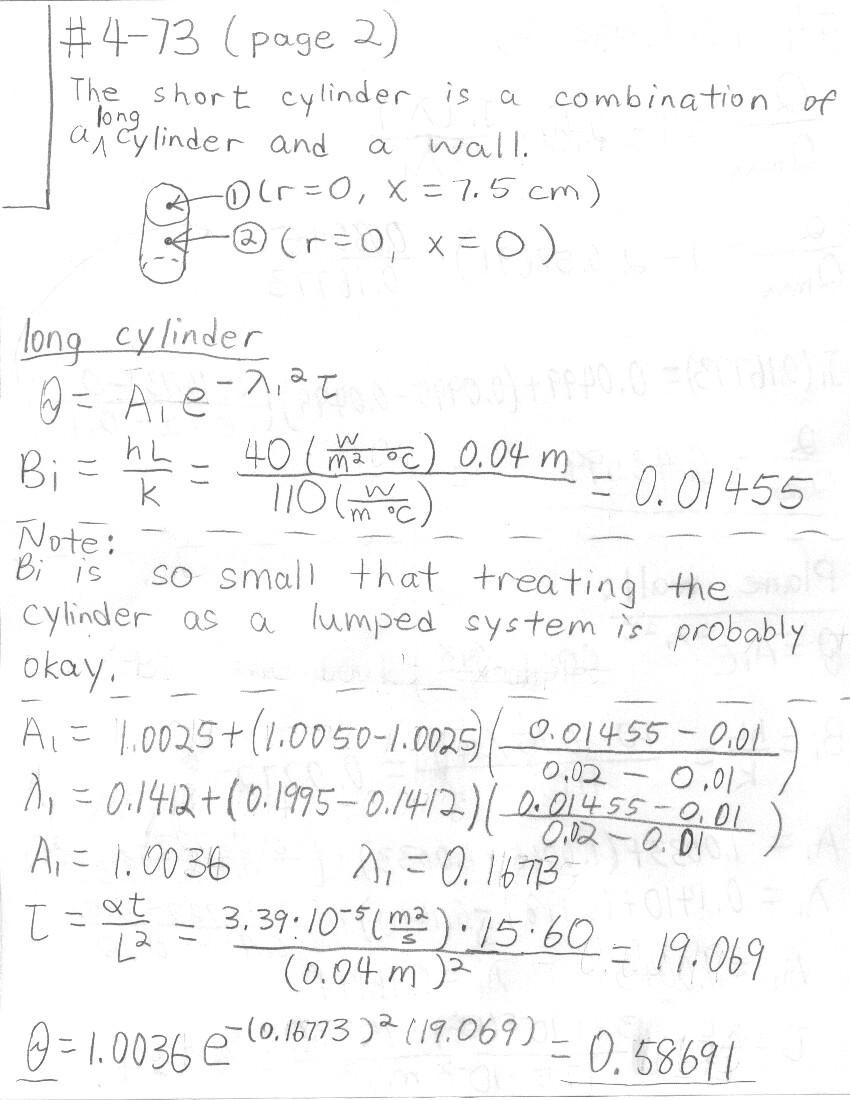 #4-73 (page 2)
The short cylinder is a combination of
a long cylinder and a wall.
① (r=0, x=7.5 cm)
② (r=0, x=0)
long cylinder
θ = A₁e^(-λ₁²τ)
Bi = hL/k = 40 (W/m² °C) 0.04 m / 110 (W/m °C) = 0.01455
Note:
Bi is so small that treating the
cylinder as a lumped system is probably
okay.
A₁ = 1.0025+(1.0050-1.0025)((0.01455-0.01)/(0.02-0.01))
λ₁ = 0.1412+(0.1995-0.1412)((0.01455-0.01)/(0.02-0.01))
A₁ = 1.0036 λ₁ = 0.16773
τ = αt/L² = 3.39·10⁻⁵(m²/s)·15·60 / (0.04 m)² = 19.069
θ = 1.0036 e^(-(0.16773)²(19.069)) = 0.58691